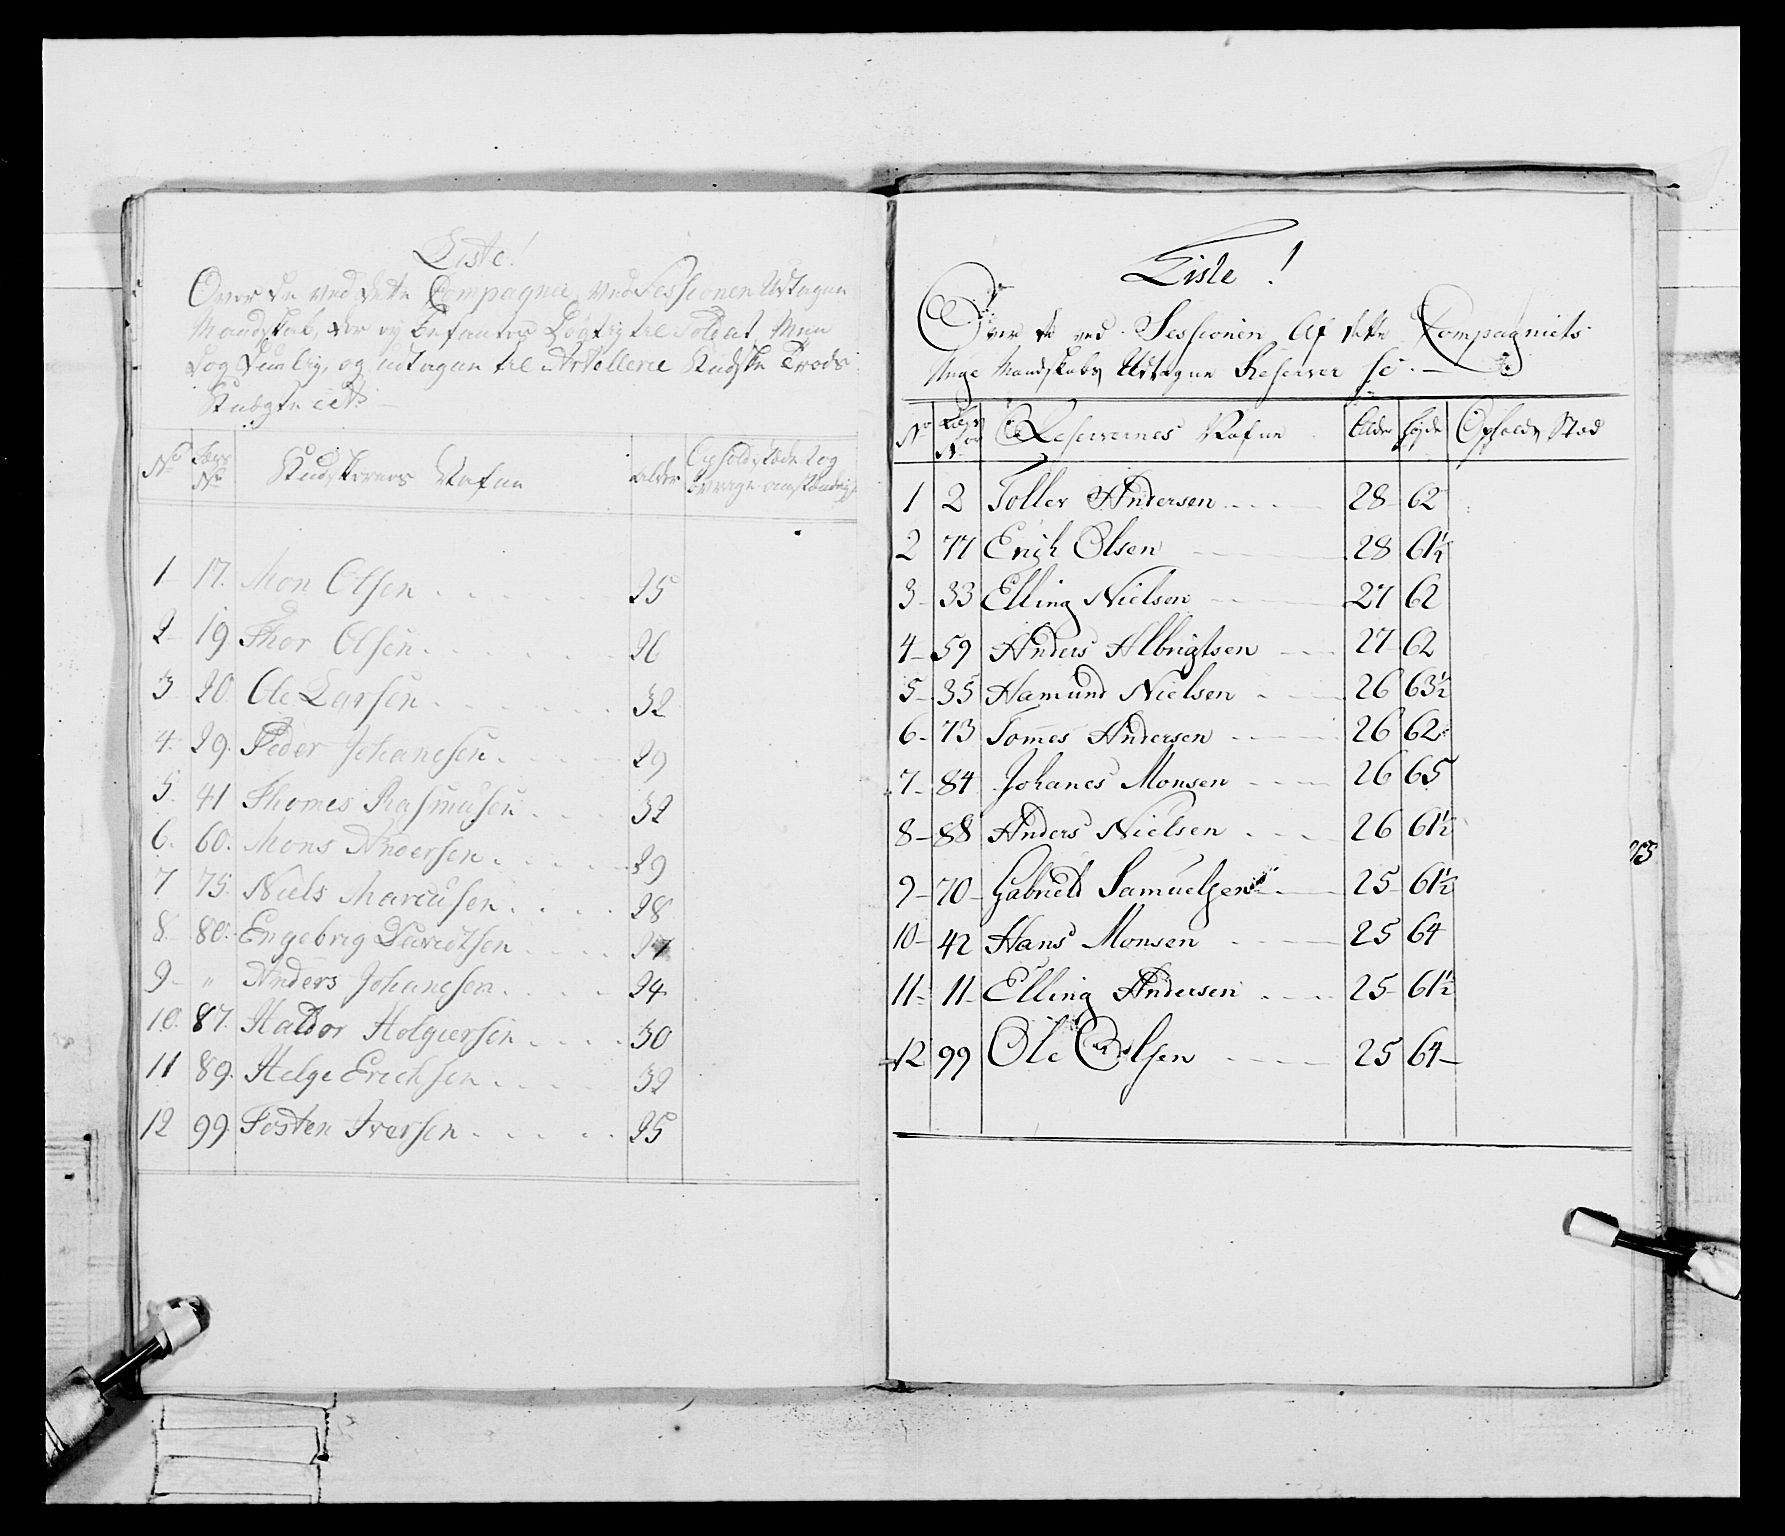 Liste!
Over de ved dette Compagnie, ved Sessionen Udtagne
Mandskab, der ey befantes dögtig til Soldat, Men
dog og udtagen til Artollerie Kudske Trods
N° Lægs N° Kudskernes Nafne alder Opholdstæde og
øvrige omstændig
1 17. Mon Olsen 25
2 19 Thor Olsen 26
3 20 Ole Larsen 32
4. 29. Peder Johanesen 29
5. 41 Thomes Rasmusen 32
6. 60. Mons Andersen 29
7 75 Niels Marcusen 28
8. 80. Engebrig Davidtsen 27
9 " Anders Johanesen 24
10. 87. Haldor Holgiersen 30
11 89. Helge Erichsen 32
12 99. Tosten Iversen 25
Liste!
Over de ved Sessionen Af dette Compagniets
Unge Mandskabs Udtagne Reserver
N° Lægs N° Reservernes Nafne Alder høyde Opholds Stæd
1 2 Toller Andersen 28 62
2 77 Erich Olsen 28 61½
3 33 Elling Nielsen 27 62
4 59 Anders Albrigtsen 27 62
5 35 Hamund Nielsen 26 63½
6 73 Tomes Andersen 26 62
7 84 Johanes Monsen 26 65
8 88 Anders Nielsen 26 61½
9 70 Gabriels Samuelsen 25 61½
10 42 Hans Monsen 25 64
11 11 Elling Andersen 25 61½
12 99 Ole Olsen 25 64